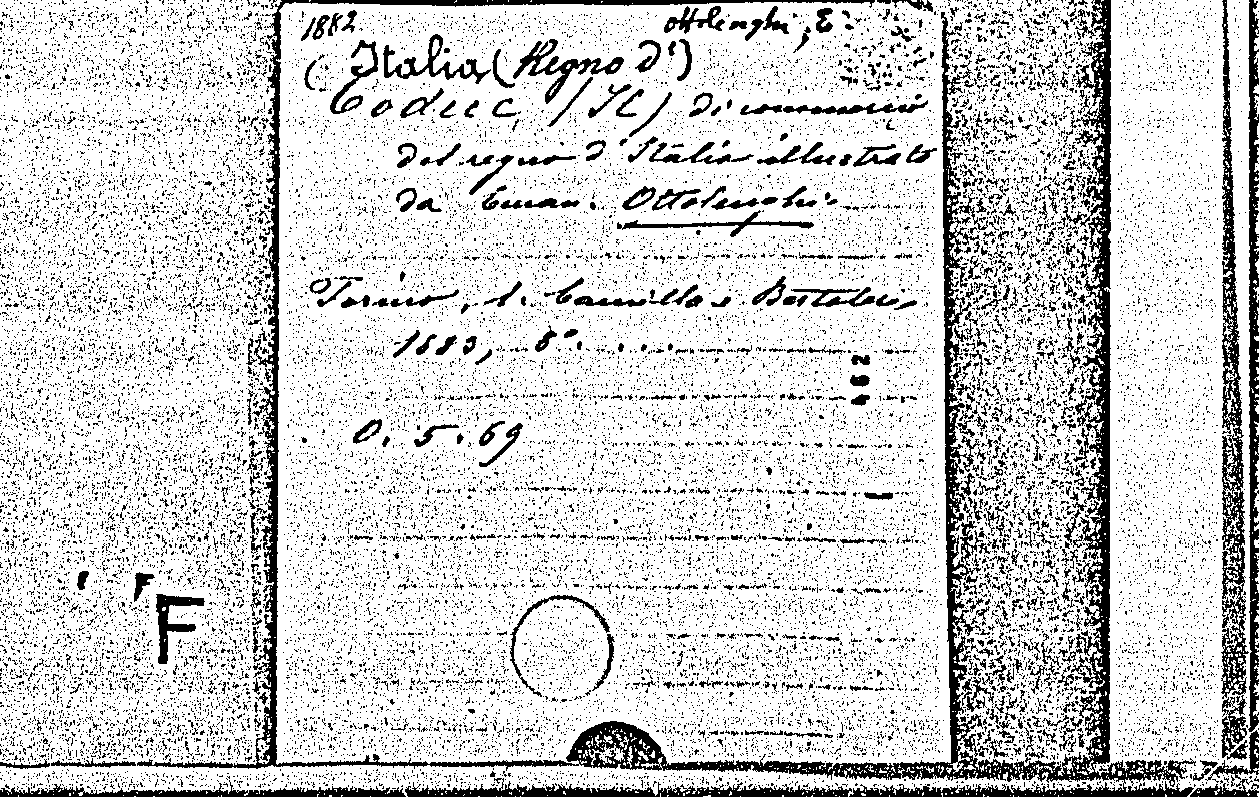 1882 Ottolenghi, E.
Italia (Regno d')
Codice (Il) di commercio
del regno d'Italia illustrato
da Eman. Ottolenghi.
Torino, t. Camilla e Bertolero
1883, 8°. . . .
462
O. 5. 69
F